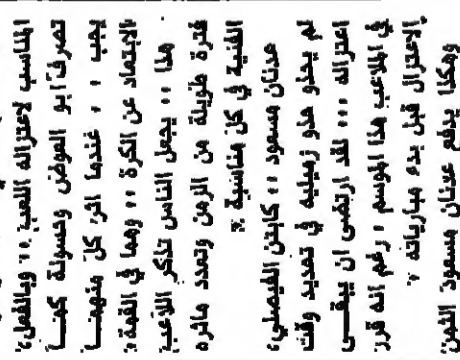 المناسب لاعتزاله اللعب .. وبالفعل ،
تصرف ابو العوض وحسولة كمـا
يجب .. عندما اثر كل منهمـا
الابتعاد عن الكرة .. وهما في القمة ،
هذا .. يجعل الناس تذكر اللاعب
فترة طويلة من الزمن وتعدد ماثره
الفنية في كل مناسبة .
عدنان مسعود .. كابتن الفيصلي ،
لم يحذو حذو زميليه في تحديد وقت
اعتزاله ... لقد ارتضى ان يبقـى
في الملاعب هذا الموسم ، رغم انه قرر
الاعتزال قبل بدء مبارياته .
وهكذا يدفع عدنان مسعود الثمن